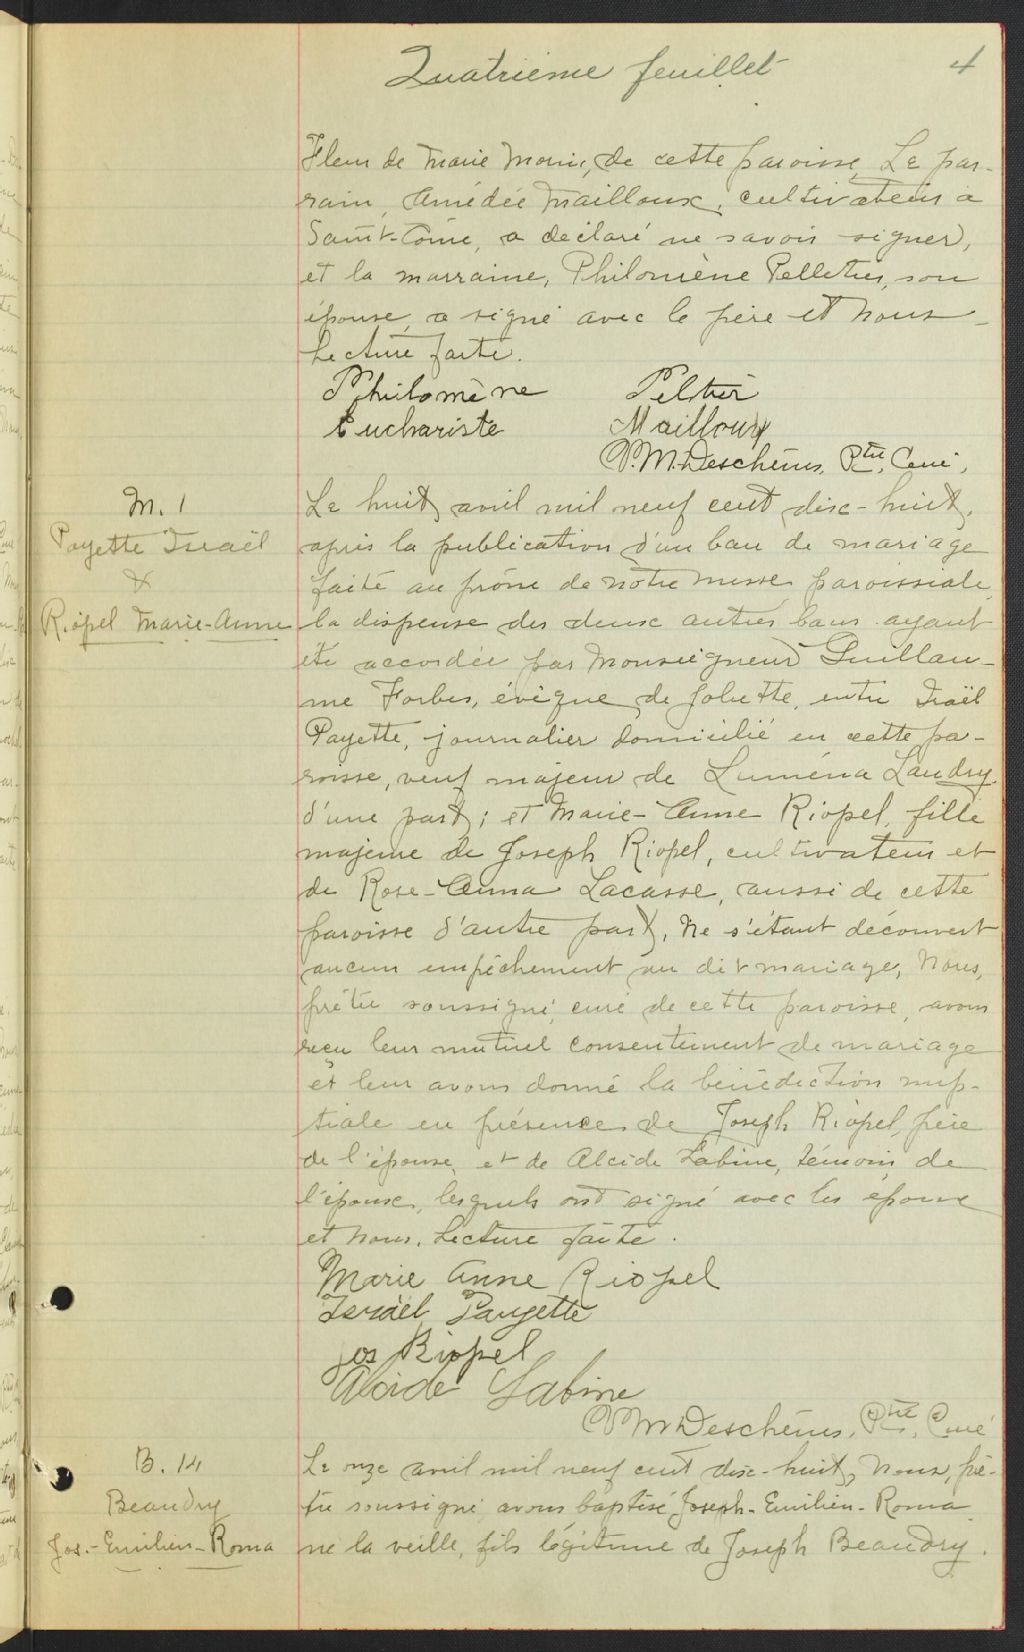 Quatrième feuillet
4
Fleur de Marie Morin, de cette paroisse. Le par-
rain, Amédée Mailloux, cultivateur à
Saint-Côme, a déclaré ne savoir signer,
et la marraine, Philomène Pelletier, son
épouse, a signé avec le père et nous
Lecture faite.
Philomène Peltier
Euchariste Mailloux
V.M. Deschênes, Ptre, Curé.
M. 1
Payette Israël
&
Riopel Marie-Anne
Le huit, avril mil neuf cent dix-huit,
après la publication d'un ban de mariage
faite au prône de notre messe paroissiale,
la dispense des deux autres bans ayant
été accordée par Monseigneur Guillau-
me Forbes, évêque de Joliette, entre Israël
Payette, journalier domicilié en cette pa-
roisse, veuf majeur de Luména Landry
d'une part; et Marie-Anne Riopel, fille
majeure de Joseph Riopel, cultivateur et
de Rose-Anna Lacasse, aussi de cette
paroisse d'autre part, Ne s'étant découvert
aucun empêchement au dit mariage, Nous,
prêtre soussigné, curé de cette paroisse, avons
reçu leur mutuel consentement de mariage
et leur avons donné la bénédiction nup-
tiale en présence de Joseph Riopel, père
de l'épouse, et de Alcide Sabine, témoin de
l'époux, lesquels ont signé avec les époux
et nous. Lecture faite.
Marie Anne Riopel
Israël Payette
Jos Riopel
Alcide Sabine
V M Deschênes, Ptre, Curé
B. 14
Beaudry
Jos.-Emilien-Roma
Le onze avril mil neuf cent dix-huit, Nous, prê-
tre soussigné, avons baptisé Joseph-Emilien-Roma
né la veille, fils légitime de Joseph Beaudry.